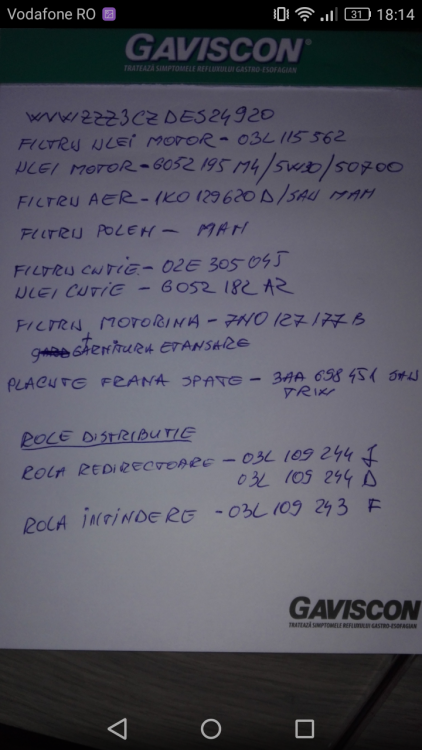 Vodafone RO
31 18:14
GAVISCON®
TRATEAZĂ SIMPTOMELE REFLUXULUI GASTRO-ESOFAGIAN
WVWZZZ3CZDE524920
FILTRU ULEI MOTOR - 03L 115 562
ULEI MOTOR - G052 195 M4/5W30/50700
FILTRU AER - 1K0 129620 D/SAU MAN
FILTRU POLEN - MAN
FILTRU CUTIE - 02E 305 045
ULEI CUTIE - G052 182 A2
FILTRU MOTORINA - 7N0 127 177 B
+
GARNITURA ETANSARE
PLACUTE FRANA SPATE - 3AA 698 451 SAU
TRW
ROLE DISTRIBUTIE
ROLA REDIRECTOARE - 03L 109 244 J
03L 109 244 D
ROLA INTINDERE - 03L 109 243 F
GAVISCON
TRATEAZĂ SIMPTOMELE REFLUXULUI GASTRO-ESOFAGIAN